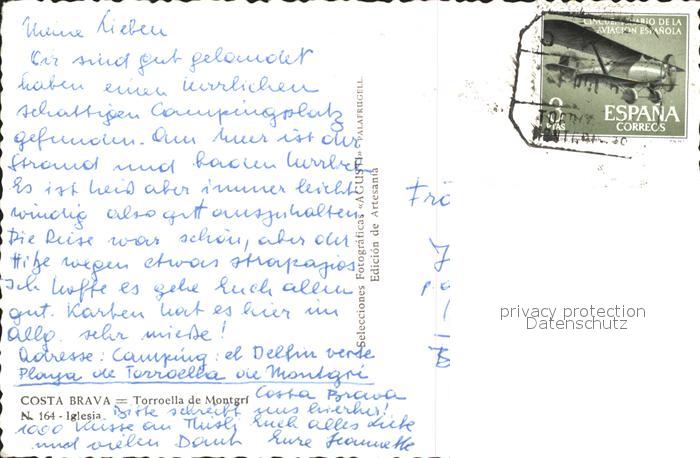 Meine Lieben
Wir sind gut gelandet
haben einen herrlichen
schattigen Campingplatz
gefunden. Am Meer ist der
Strand und baden herrlich
Es ist heiß aber immer leicht
windig also gut auszuhalten
Die Reise war schön, aber der
Hitze wegen etwas strapaziös
Ich hoffe es gehe Euch allen
gut. Karten hat es hier im
allg. sehr miese!
Adresse: Camping: el Delfin verde
Playa de Torroella de Montgri
Costa Brava
COSTA BRAVA = Torroella de Montgrí
N. 164 - Iglesia
Bitte schreibt uns hierher!
1000 Küsse an Euch alles Liebe
und vielen Dank Eure Jeannette
Selecciones Fotográficas «AGUSTI» - PALAFRUGELL
Edición de Artesanía
CINCUENTENARIO DE LA
AVIACIÓN ESPAÑOLA
3
PTAS
ESPAÑA
CORREOS
Frö
privacy protection
Datenschutz